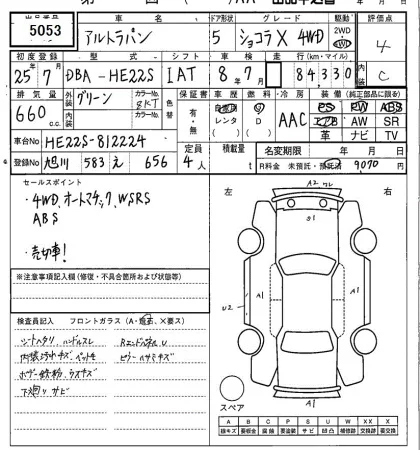 出品番号 車名 ドア形状 グレード 駆動 評価点
5053 アルトラパン 5 ショコラX 4WD 2WD 4WD 4
初度登録 型式 シフト 車検 走行 (km・マイル) 内装
25年7月 DBA-HE22S IAT 8年7月 84,330 C
排気量 外装 カラーNo. 色替 保証書 車歴 燃料 冷房 装備 (純正部品に限る)
660 c.c. グリーン 有・無 自家用 レンタ G D AAC PS PW ABS
エアB AW SR
内装 カラーNo. 革 ナビ TV
車台No HE22S-812224 定員 積載量 名変期限 年 月 日
登録No 旭川 583 え 656 4人 t R料金 未預託・預託済 9070 円
セールスポイント
・4WD、オートマチック、WSRS
ABS
・売切車!
※注意事項記入欄(修復・不具合箇所および状態等)
検査員記入 フロントガラス(A・飛石・X要ス)
シートヘタリ、ハンドルスレ
内装汚れキズ、ペットモ
ボデー鉄粉、ウスキズ
下廻リサビ
RエンドパネルU
ピラーハサミキズ
左 右
A2 ワレ
S1
U2 A1 A1
A1
スペア
A B C P S U W X XX
線キズ 要板金 腐蝕 要塗装 サビ 凹凸 補修跡 要交換 交換済